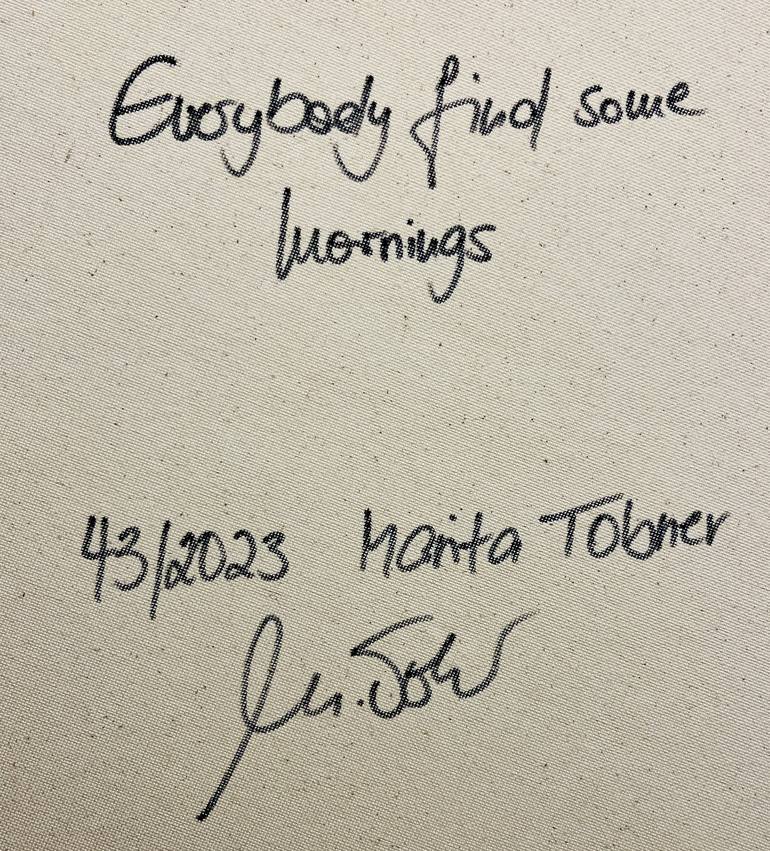 Everybody find some
mornings
43/2023 Marita Tobner
M. Tobner